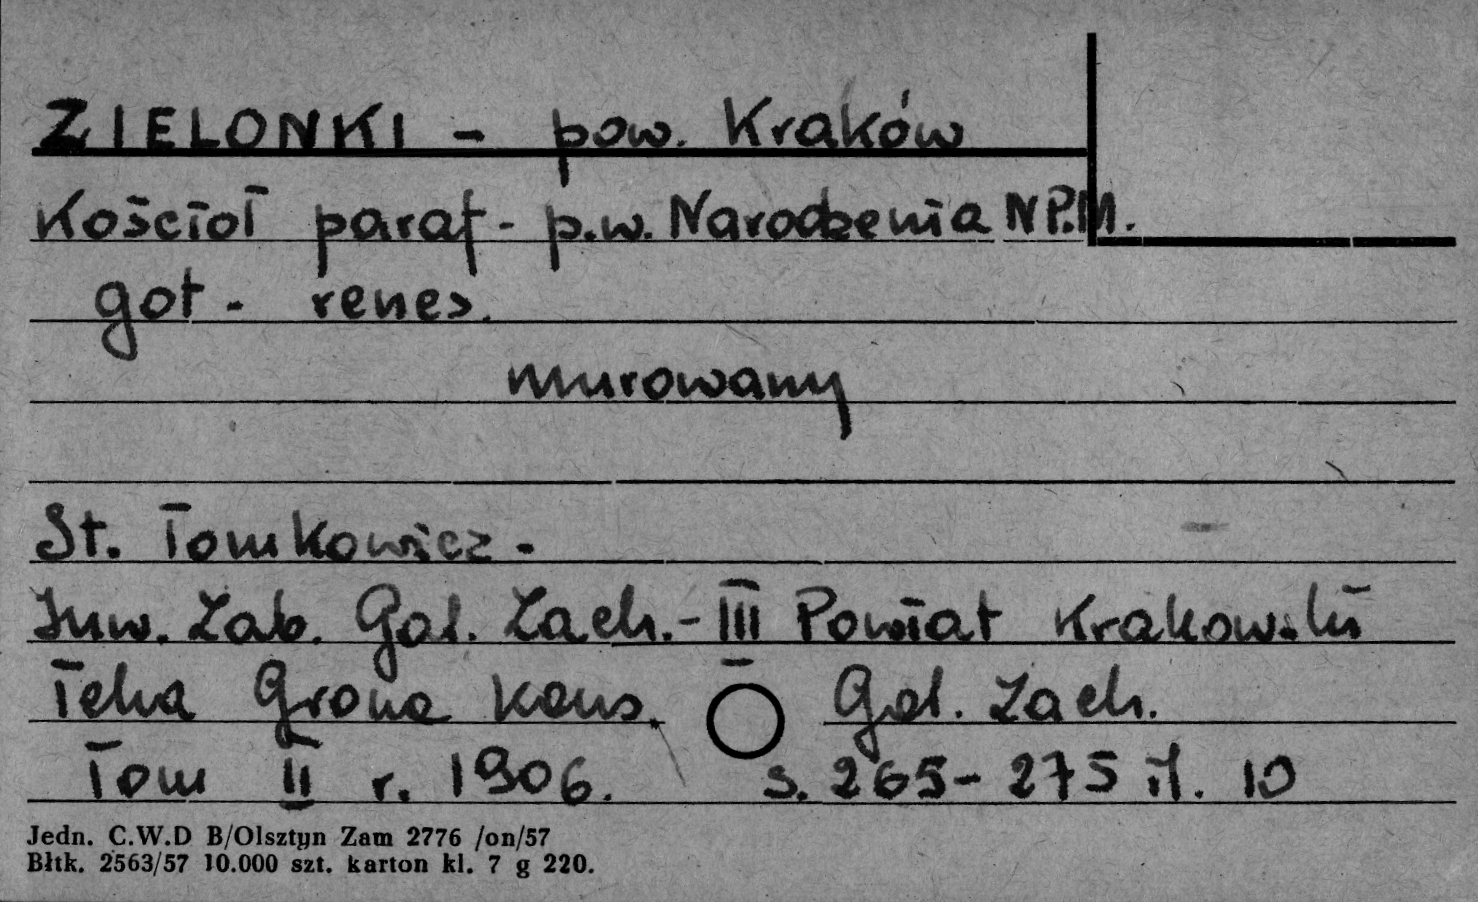 ZIELONKI - pow. Kraków
Kościół paraf - p.w. Narodzenia NP.M.
got - renes.
murowany
St. Tomkowicz -
Inw. Zab. Gal. Zach. - III Powiat Krakowski
Teka Grona Kons. Gal. Zach.
Tom II r. 1906. s. 265 - 275 il. 10
Jedn. C.W.D B/Olsztyn Zam 2776 /on/57
Błtk. 2563/57 10.000 szt. karton kl. 7 g 220.